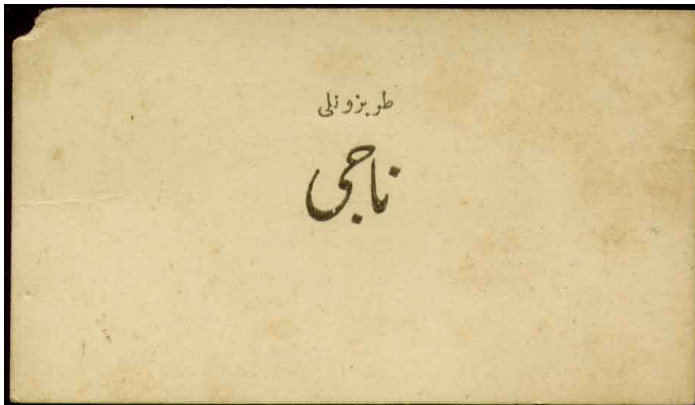 طربزونلی
ناجی